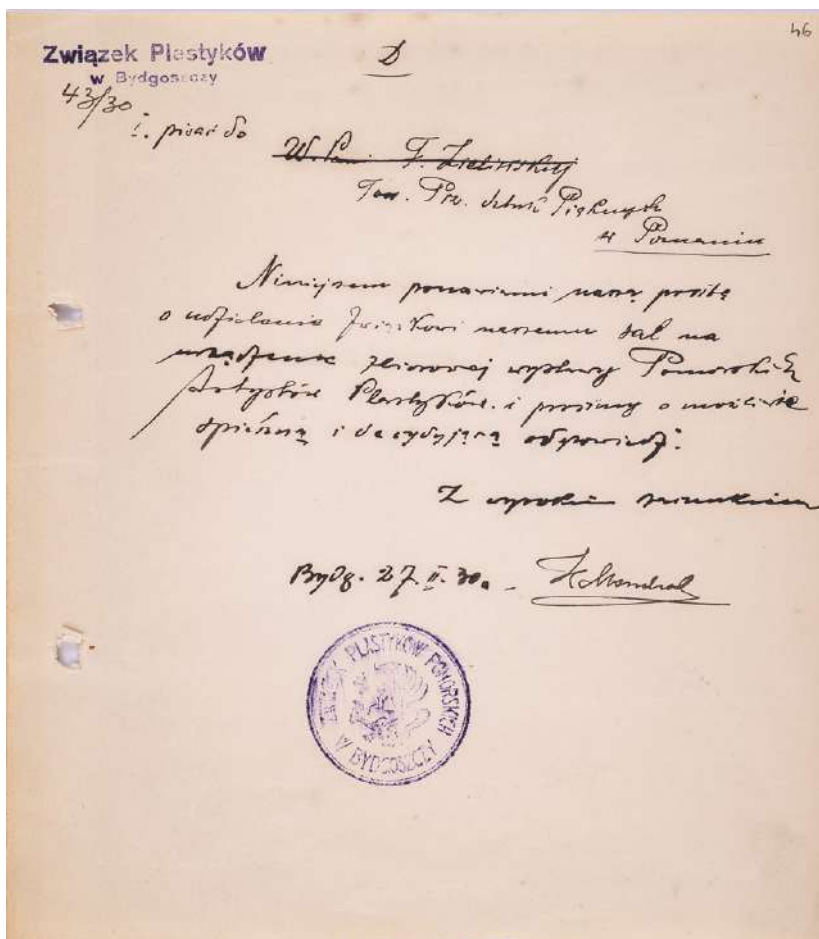 46
Związek Plastyków
w Bydgoszczy
D
43/30
I. pisać do
W. Pani F. Zielińskiej
Tow. Prz. Sztuk Pięknych
w Poznaniu
Niniejszem ponawiamy naszą prośbę
o udzielenie Związkowi naszemu sal na
urządzenie zbiorowej wystawy Pomorskich
Artystów Plastyków. i prosimy o możliwie
spieszną i decydującą odpowiedź.
Z wysokim szacunkiem
Bydg. 27. II. 30.
ZWIĄZEK PLASTYKÓW POMORSKICH
W BYDGOSZCZY